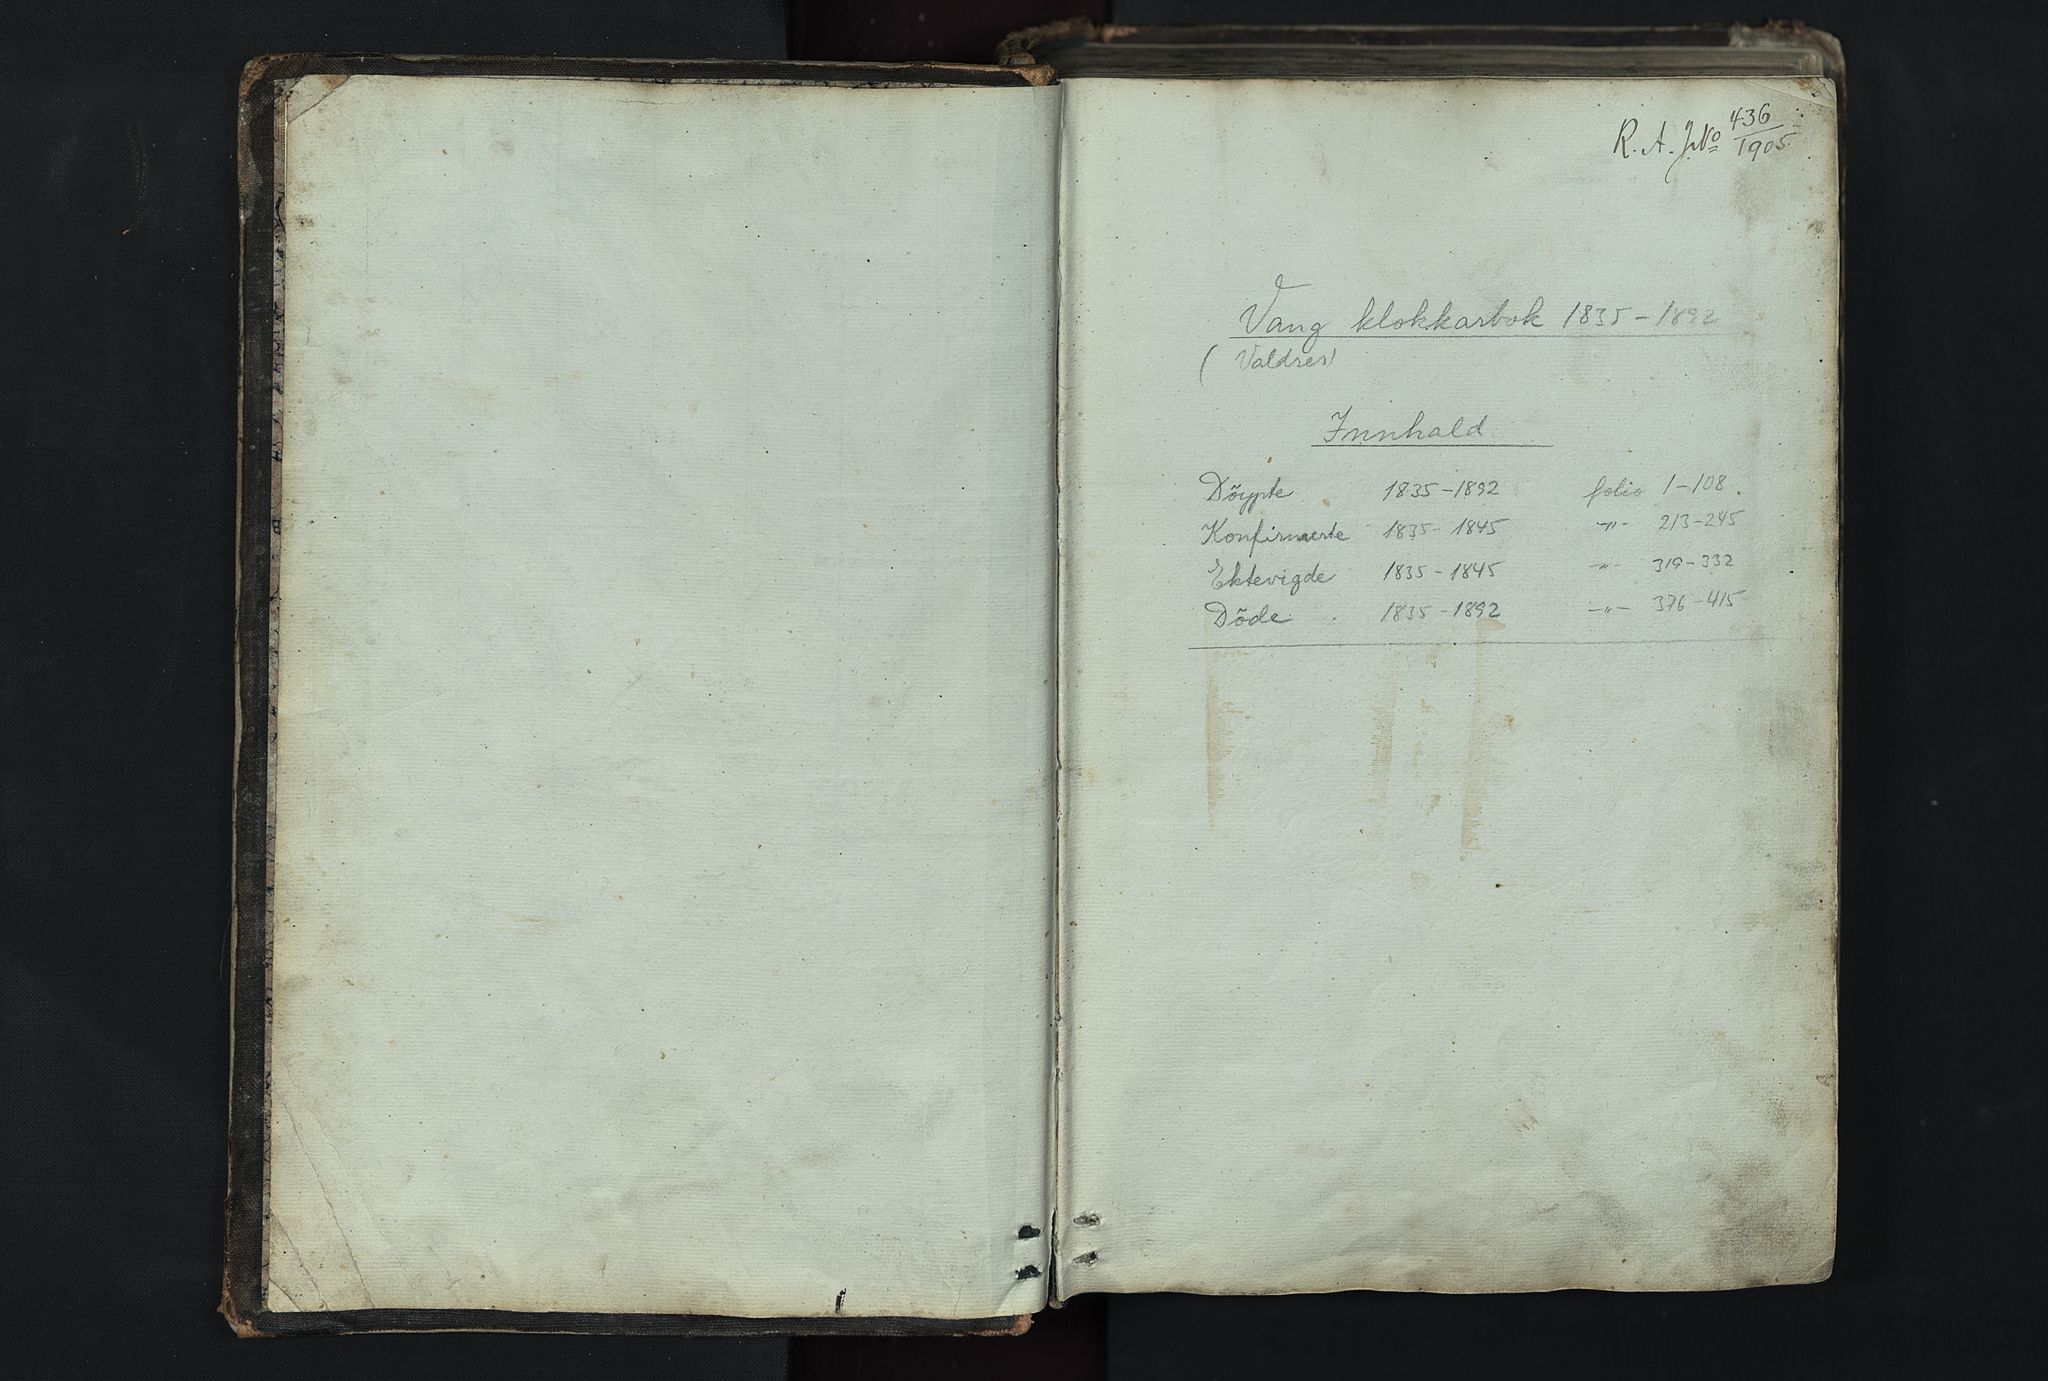 R. A. J.No 436/1905
Vang klokkarbok 1835-1892
(Valdres)
Innhald
Döypte 1835-1892 folio 1-108
Konfirmerte 1835-1845 -"- 213-245
Ektevigde 1835-1845 -"- 319-332
Döde 1835-1892 -"- 376-415